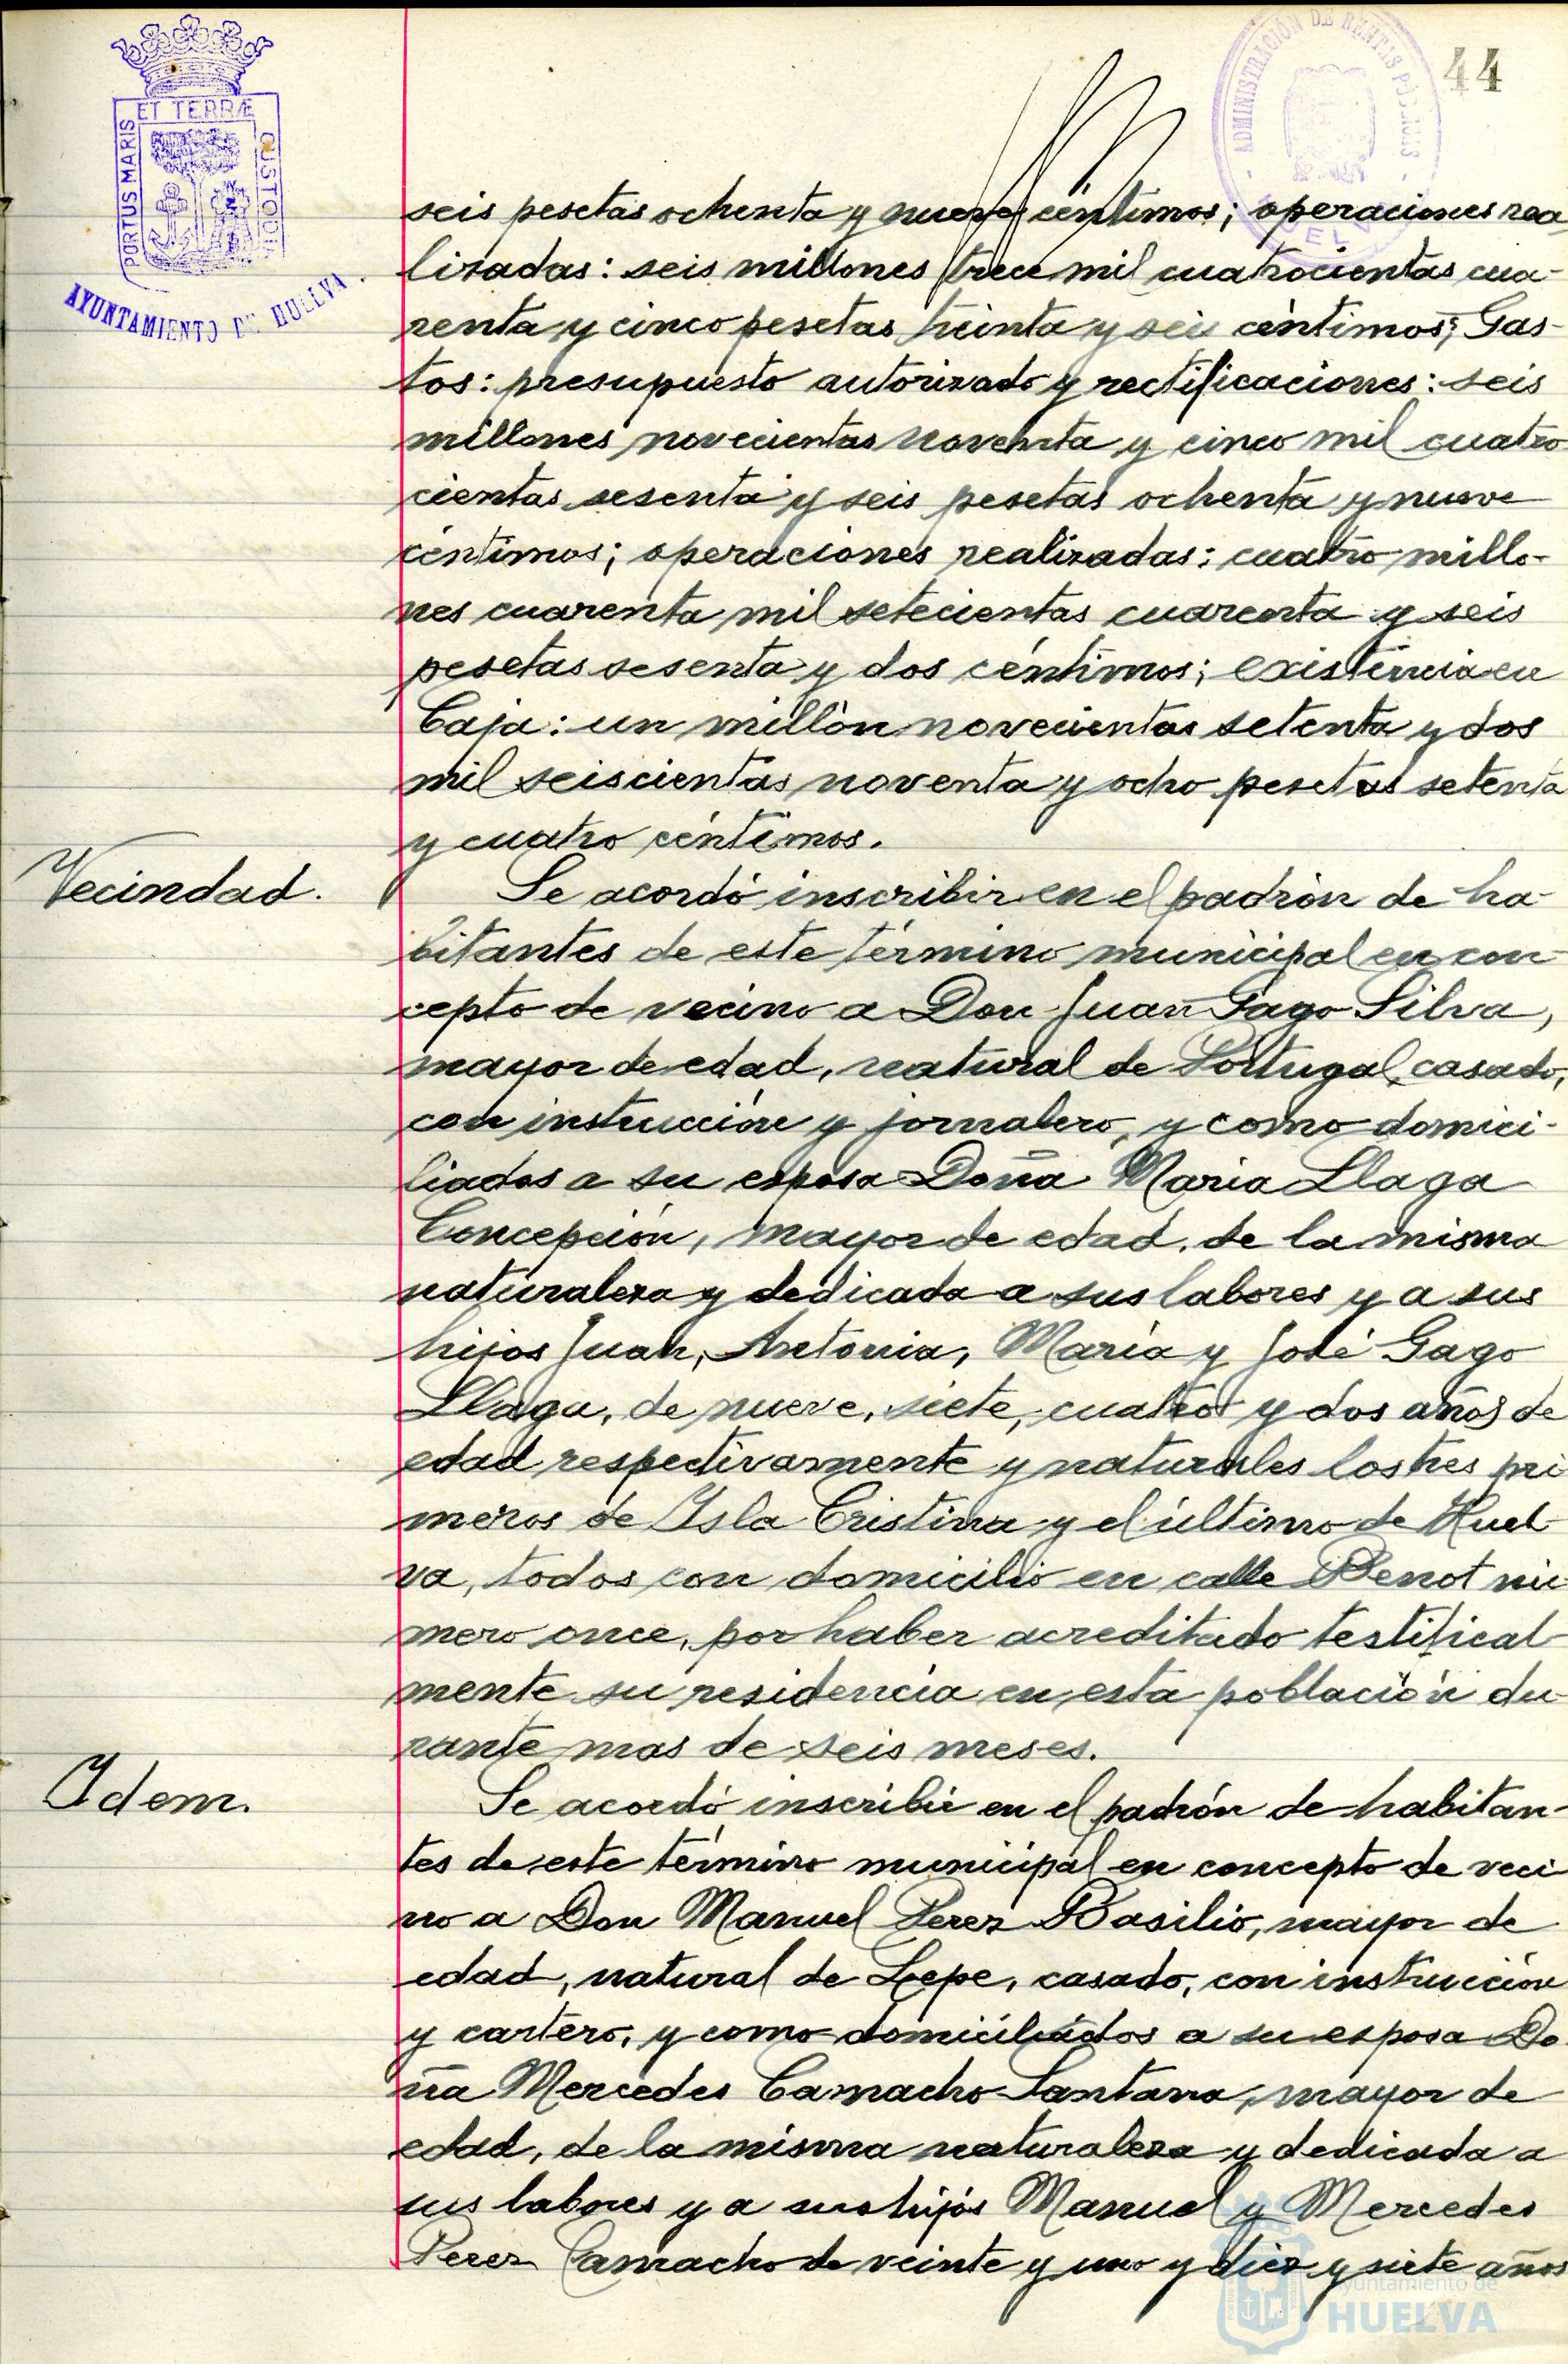 44
ET TERRÆ
PORTUS MARIS
CUSTODIA
AYUNTAMIENTO DE HUELVA
ADMINISTRACIÓN DE RENTAS PÚBLICAS
HUELVA
seis pesetas ochenta y nueve céntimos; operaciones rea
lizadas: seis millones trece mil cuatrocientas cua-
renta y cinco pesetas treinta y seis céntimos; Gas-
tos: presupuesto autorizado y rectificaciones: seis
millones novecientas noventa y cinco mil cuatro
cientas sesenta y seis pesetas ochenta y nueve
céntimos; operaciones realizadas: cuatro millo-
nes cuarenta mil setecientas cuarenta y seis
pesetas sesenta y dos céntimos; existencia en
Caja: un millón novecientas setenta y dos
mil seiscientas noventa y ocho pesetas setenta
y cuatro céntimos.
Vecindad.
Se acordó inscribir en el padrón de ha-
bitantes de este término municipal en con-
cepto de vecino a Don Juan Gago Silva,
mayor de edad, natural de Portugal, casado,
con instrucción y jornalero, y como domici-
liados a su esposa Doña María Llaga
Concepción, mayor de edad, de la misma
naturaleza y dedicada a sus labores y a sus
hijos Juan, Antonia, María y José Gago
Llaga, de nueve, siete, cuatro y dos años de
edad respectivamente y naturales los tres pri
meros de Isla Cristina y el último de Huel-
va, todos con domicilio en calle Benot nú-
mero once, por haber acreditado testifical
mente su residencia en esta población du-
rante mas de seis meses.
Idem.
Se acordó inscribir en el padrón de habitan-
tes de este término municipal en concepto de veci
no a Don Manuel Perez Basilio, mayor de
edad, natural de Lepe, casado, con instrucción
y cartero, y como domiciliados a su esposa Do
ña Mercedes Camacho Santana, mayor de
edad, de la misma naturaleza y dedicada a
sus labores y a sus hijos Manuel y Mercedes
Perez Camacho de veinte y uno y diez y siete años
Ayuntamiento de
HUELVA